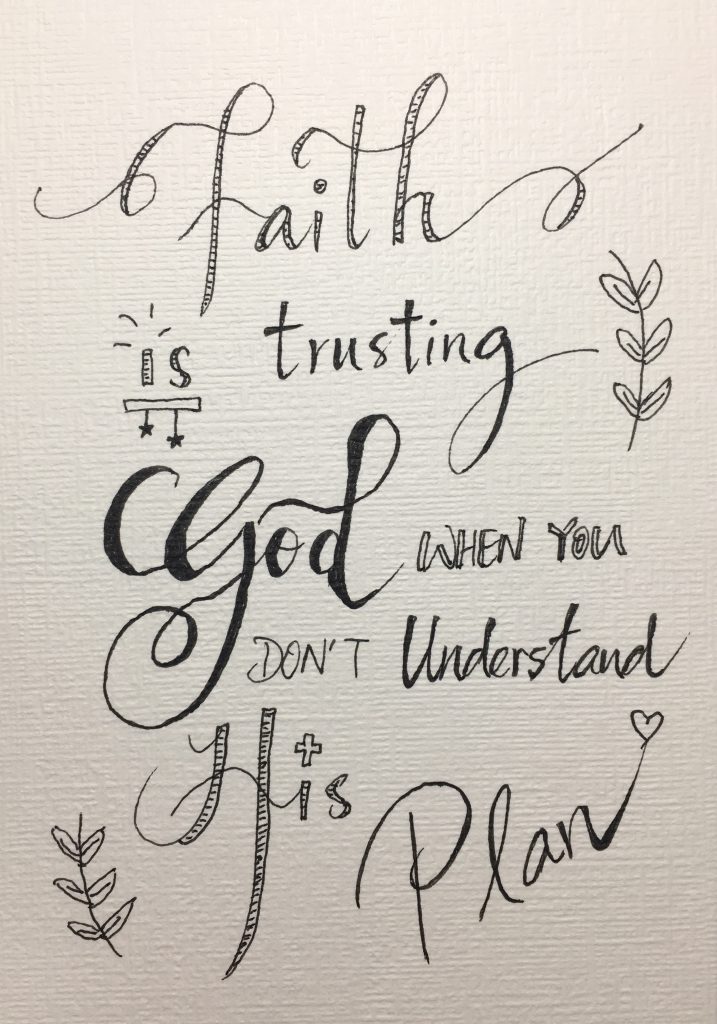 Faith
is trusting
God WHEN YOU
DON'T Understand
His Plan